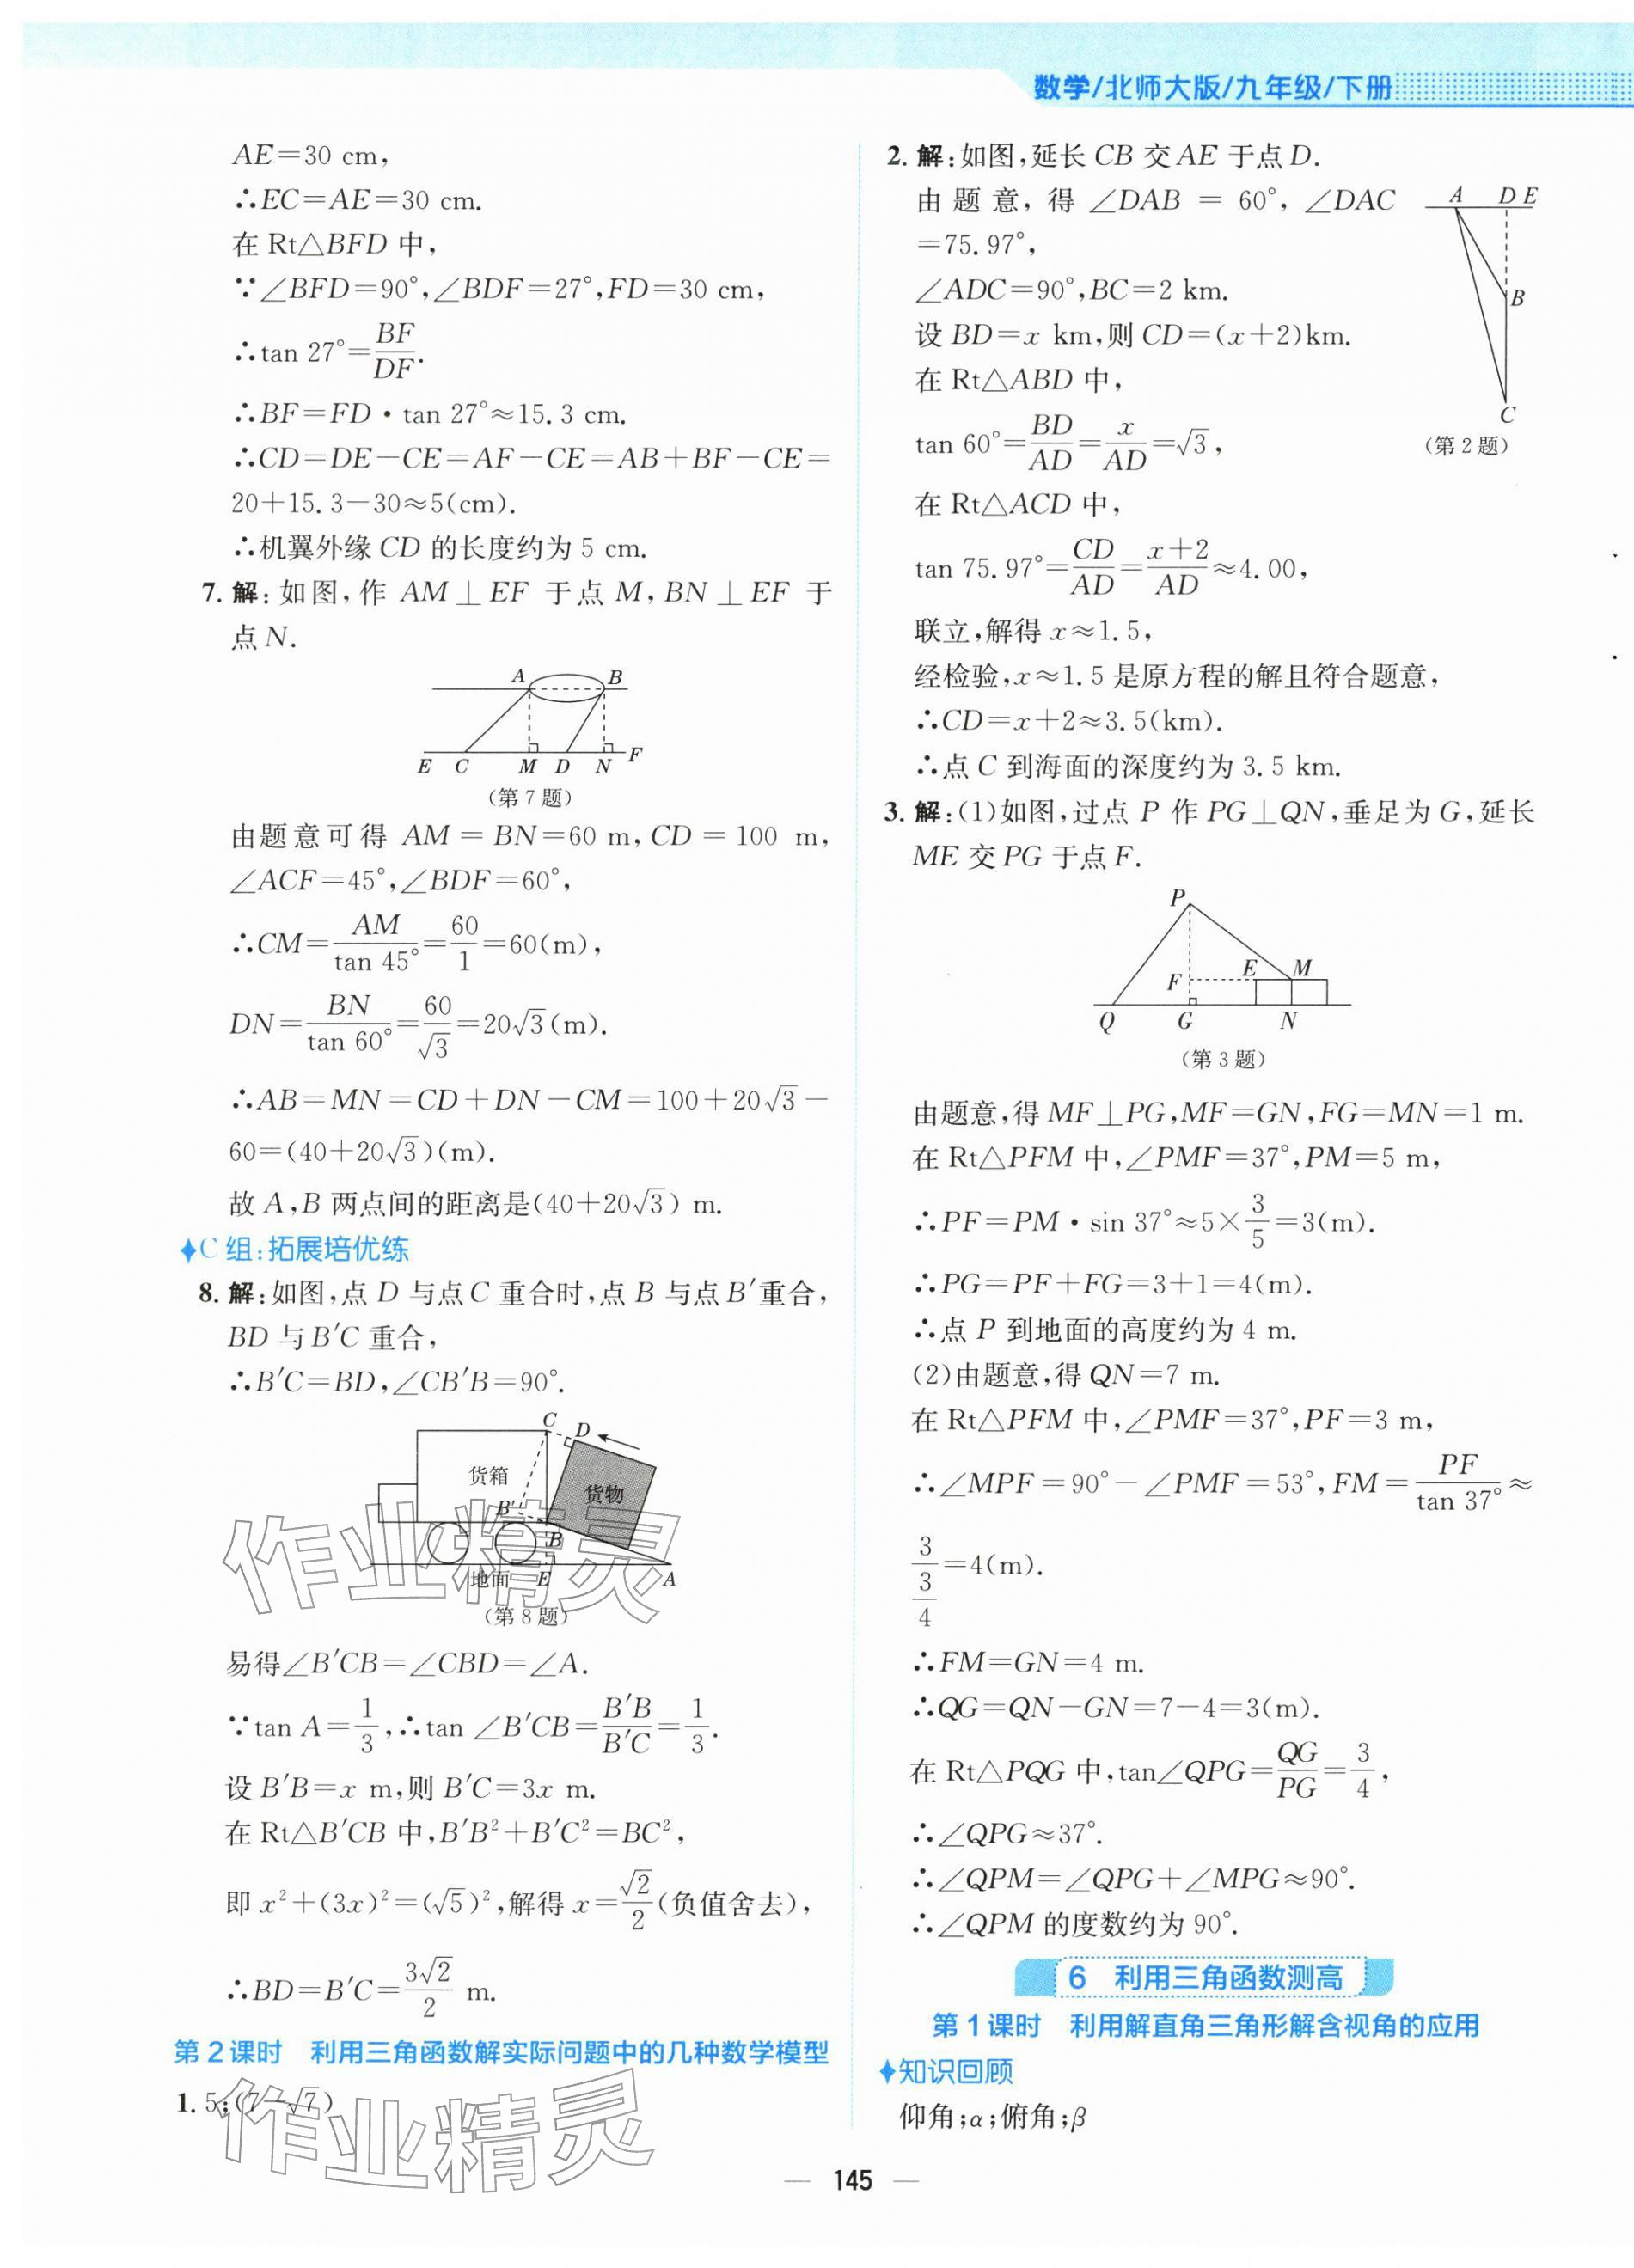 数学/北师大版/九年级/下册
AE=30 cm,
∴EC=AE=30 cm.
在 Rt△BFD 中,
∵∠BFD=90°,∠BDF=27°,FD=30 cm,
∴tan 27°=BF/DF.
∴BF=FD·tan 27°≈15.3 cm.
∴CD=DE-CE=AF-CE=AB+BF-CE=
20+15.3-30≈5(cm).
∴机翼外缘 CD 的长度约为 5 cm.
7. 解:如图,作 AM⊥EF 于点 M,BN⊥EF 于
点 N.
A B
E C M D N F
(第 7 题)
由题意可得 AM=BN=60 m,CD=100 m,
∠ACF=45°,∠BDF=60°,
∴CM=AM/tan 45°=60/1=60(m),
DN=BN/tan 60°=60/√3=20√3(m).
∴AB=MN=CD+DN-CM=100+20√3-
60=(40+20√3)(m).
故 A,B 两点间的距离是(40+20√3) m.
C 组:拓展培优练
8. 解:如图,点 D 与点 C 重合时,点 B 与点 B′重合,
BD 与 B′C 重合,
∴B′C=BD,∠CB′B=90°.
C D
货箱
货物
B′
B
地面 E A
(第 8 题)
易得∠B′CB=∠CBD=∠A.
∵tan A=1/3,∴tan ∠B′CB=B′B/B′C=1/3.
设 B′B=x m,则 B′C=3x m.
在 Rt△B′CB 中,B′B²+B′C²=BC²,
即 x²+(3x)²=(√5)²,解得 x=√2/2(负值舍去),
∴BD=B′C=3√2/2 m.
第 2 课时 利用三角函数解实际问题中的几种数学模型
1. 5;(7-√7)
2. 解:如图,延长 CB 交 AE 于点 D.
由题意,得 ∠DAB = 60°,∠DAC
=75.97°,
∠ADC=90°,BC=2 km.
设 BD=x km,则 CD=(x+2)km.
在 Rt△ABD 中,
tan 60°=BD/AD=x/AD=√3,
在 Rt△ACD 中,
tan 75.97°=CD/AD=(x+2)/AD≈4.00,
A D E
B
C
(第 2 题)
联立,解得 x≈1.5,
经检验,x≈1.5 是原方程的解且符合题意,
∴CD=x+2≈3.5(km).
∴点 C 到海面的深度约为 3.5 km.
3. 解:(1)如图,过点 P 作 PG⊥QN,垂足为 G,延长
ME 交 PG 于点 F.
P
F E M
Q G N
(第 3 题)
由题意,得 MF⊥PG,MF=GN,FG=MN=1 m.
在 Rt△PFM 中,∠PMF=37°,PM=5 m,
∴PF=PM·sin 37°≈5×3/5=3(m).
∴PG=PF+FG=3+1=4(m).
∴点 P 到地面的高度约为 4 m.
(2)由题意,得 QN=7 m.
在 Rt△PFM 中,∠PMF=37°,PF=3 m,
∴∠MPF=90°-∠PMF=53°,FM=PF/tan 37°≈
3/(3/4)=4(m).
∴FM=GN=4 m.
∴QG=QN-GN=7-4=3(m).
在 Rt△PQG 中,tan∠QPG=QG/PG=3/4,
∴∠QPG≈37°.
∴∠QPM=∠QPG+∠MPG≈90°.
∴∠QPM 的度数约为 90°.
6 利用三角函数测高
第 1 课时 利用解直角三角形解含视角的应用
知识回顾
仰角;α;俯角;β
145
作业精灵
作业精灵